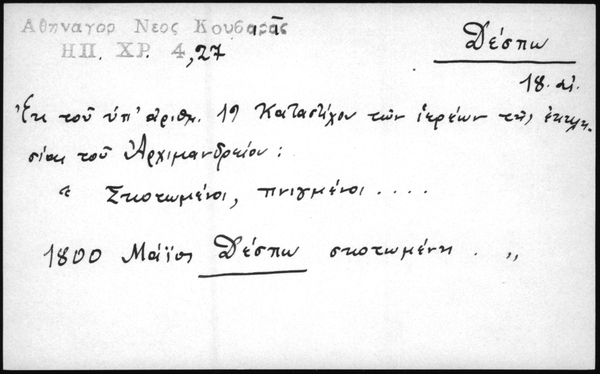 Αθηναγορ Νεος Κουβαρᾶς
ΗΠ. ΧΡ. 4, 27
Δέσπω
18. αἰ.
Ἐκ τοῦ ὑπ' ἀριθμ. 19 Καταστίχου τῶν ἱερέων τῆς ἐκκλη-
σίας τοῦ Ἀρχιμανδρείου:
" Σκοτωμένοι, πνιγμένοι ....
1800 Μάϊος Δέσπω σκοτωμένη . "